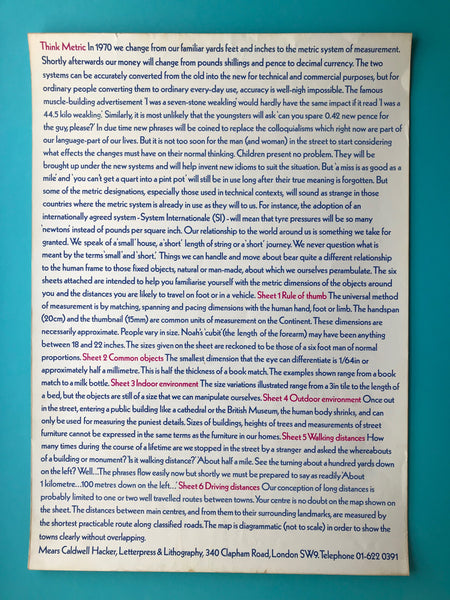 Think Metric In 1970 we change from our familiar yards feet and inches to the metric system of measurement.
Shortly afterwards our money will change from pounds shillings and pence to decimal currency. The two
systems can be accurately converted from the old into the new for technical and commercial purposes, but for
ordinary people converting them to ordinary every-day use, accuracy is well-nigh impossible. The famous
muscle-building advertisement 'I was a seven-stone weakling' would hardly have the same impact if it read 'I was a
44.5 kilo weakling.' Similarly, it is most unlikely that the youngsters will ask 'can you spare 0.42 new pence for
the guy, please?' In due time new phrases will be coined to replace the colloquialisms which right now are part of
our language-part of our lives. But it is not too soon for the man (and woman) in the street to start considering
what effects the changes must have on their normal thinking. Children present no problem. They will be
brought up under the new systems and will help invent new idioms to suit the situation. But 'a miss is as good as a
mile' and 'you can't get a quart into a pint pot' will still be in use long after their true meaning is forgotten. But
some of the metric designations, especially those used in technical contexts, will sound as strange in those
countries where the metric system is already in use as they will to us. For instance, the adoption of an
internationally agreed system - System Internationale (SI) - will mean that tyre pressures will be so many
'newtons' instead of pounds per square inch. Our relationship to the world around us is something we take for
granted. We speak of a 'small' house, a 'short' length of string or a 'short' journey. We never question what is
meant by the terms 'small' and 'short.' Things we can handle and move about bear quite a different relationship
to the human frame to those fixed objects, natural or man-made, about which we ourselves perambulate. The six
sheets attached are intended to help you familiarise yourself with the metric dimensions of the objects around
you and the distances you are likely to travel on foot or in a vehicle. Sheet 1 Rule of thumb The universal method
of measurement is by matching, spanning and pacing dimensions with the human hand, foot or limb. The handspan
(20cm) and the thumbnail (15mm) are common units of measurement on the Continent. These dimensions are
necessarily approximate. People vary in size. Noah's 'cubit' (the length of the forearm) may have been anything
between 18 and 22 inches. The sizes given on the sheet are reckoned to be those of a six foot man of normal
proportions. Sheet 2 Common objects The smallest dimension that the eye can differentiate is 1/64in or
approximately half a millimetre. This is half the thickness of a book match. The examples shown range from a book
match to a milk bottle. Sheet 3 Indoor environment The size variations illustrated range from a 3in tile to the length of
a bed, but the objects are still of a size that we can manipulate ourselves. Sheet 4 Outdoor environment Once out
in the street, entering a public building like a cathedral or the British Museum, the human body shrinks, and can
only be used for measuring the puniest details. Sizes of buildings, heights of trees and measurements of street
furniture cannot be expressed in the same terms as the furniture in our homes. Sheet 5 Walking distances How
many times during the course of a lifetime are we stopped in the street by a stranger and asked the whereabouts
of a building or monument? 'Is it walking distance?' 'About half a mile. See the turning about a hundred yards down
on the left? Well...' The phrases flow easily now but shortly we must be prepared to say as readily 'About
1 kilometre...100 metres down on the left...' Sheet 6 Driving distances Our conception of long distances is
probably limited to one or two well travelled routes between towns. Your centre is no doubt the map shown on
the sheet. The distances between main centres, and from them to their surrounding landmarks, are measured by
the shortest practicable route along classified roads. The map is diagrammatic (not to scale) in order to show the
towns clearly without overlapping.
Mears Caldwell Hacker, Letterpress & Lithography, 340 Clapham Road, London SW9. Telephone 01-622 0391